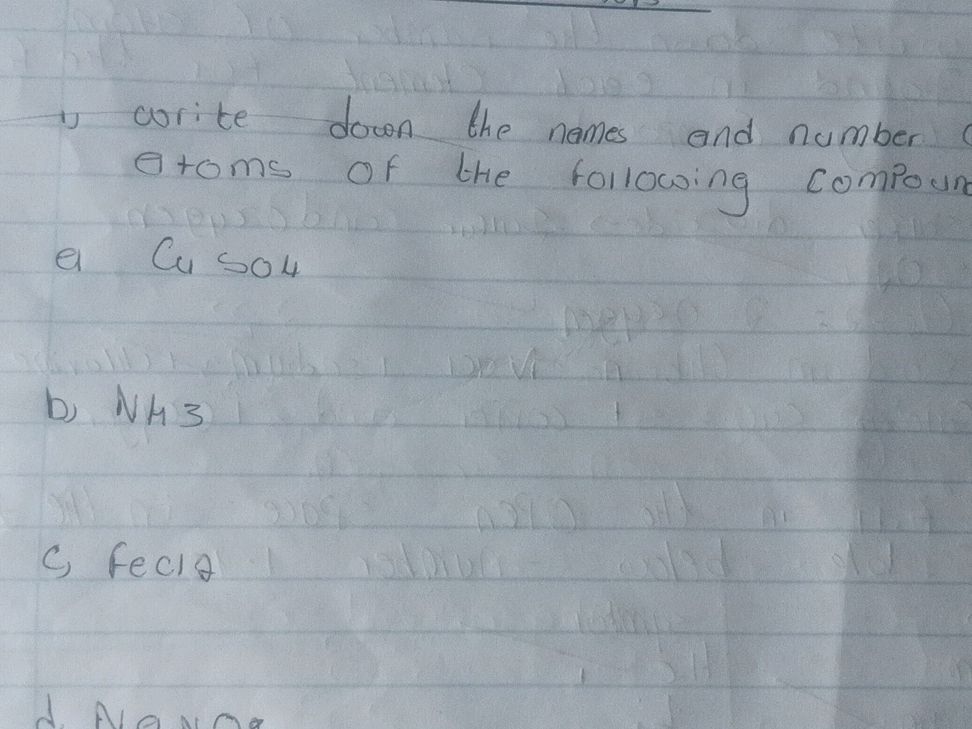 1) write down the names and number
atoms of the following compoun
a CuSO4
b) NH3
c) FeCl2
d